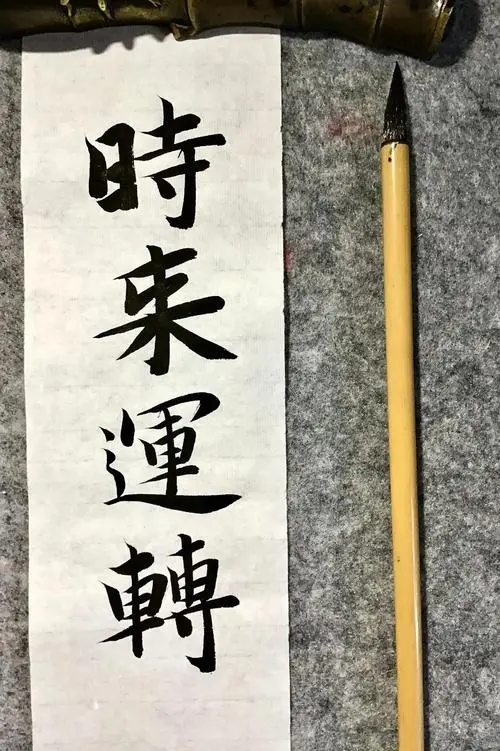 時来運轉